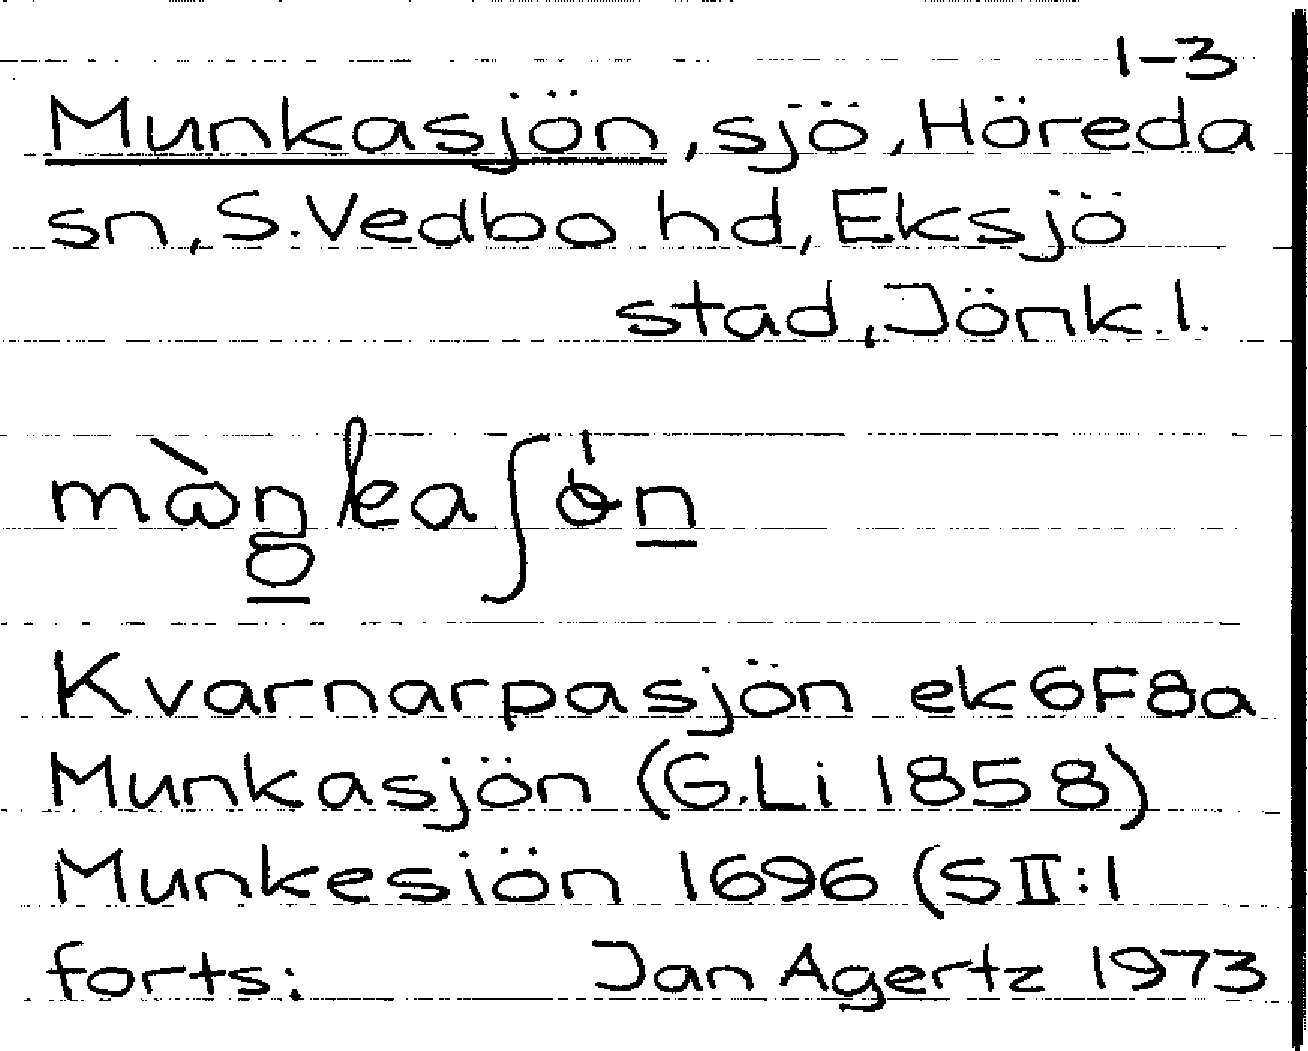 1-3
Munkasjön, sjö, Höreda
sn, S. Vedbo hd, Eksjö
stad, Jönk. l.
Kvarnarpasjön ek6F8a
Munkasjön (G.Li 1858)
Munkesiön 1696 (S II:1
forts: Jan Agertz 1973